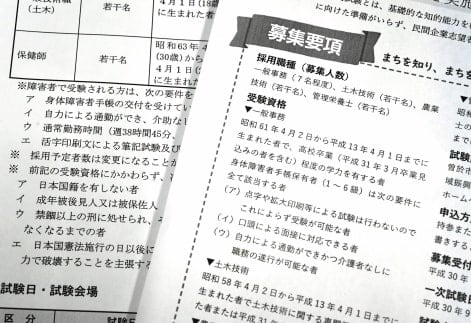 (土木)
若干名
4月1日(18歳
に生まれた者
保健師
若干名
昭和63年4
(30歳)から
4月1日(
に生まれた
※障害者で受験される方は、次の要件を
ア 身体障害者手帳の交付を受けてい
イ 自力による通勤ができ、介助なし
ウ 通常勤務時間(週38時間45分、
エ 活字印刷文による筆記試験及び
※ 採用予定者数は変更になることが
※ 前記の受験資格にかかわらず、
ア 日本国籍を有しない者
イ 成年被後見人又は被保佐人
ウ 禁錮以上の刑に処せられ、そ
なくなるまでの者
エ 日本国憲法施行の日以後に
力で破壊することを主張する
試験日・試験会場
区 分
試験日
試験とは、基礎的な知的能力を
に向けた準備がいらず、民間企業志望者
募集要項
まちを知り、まち
採用職種(募集人数)
一般事務(7名程度)、土木技術(若干名)、農業
技術(若干名)、管理栄養士(若干名)
受験資格
▼一般事務
昭和61年4月2日から平成13年4月1日までに
生まれた者で、高校卒業(平成31年3月卒業見
込みの者を含む)程度の学力を有する者
身体障害者手帳保有者(1~6級)は次の要件に
全て該当する者
(ア)点字や拡大印刷等による試験は行わないので
これによらず受験が可能な者
(イ)口頭による面接に対応できる者
(ウ)自力による通勤ができかつ介護者なしに
職務の遂行が可能な者
▼土木技術
昭和58年4月2日から平成13年4月1日までに
生まれた者で土木技術に関する専
た者または平成31年
受験案内
曽於市
域振興
ホーム
申込方
持参また
書きする
募集受付
平成30年
一次試験
平成30年